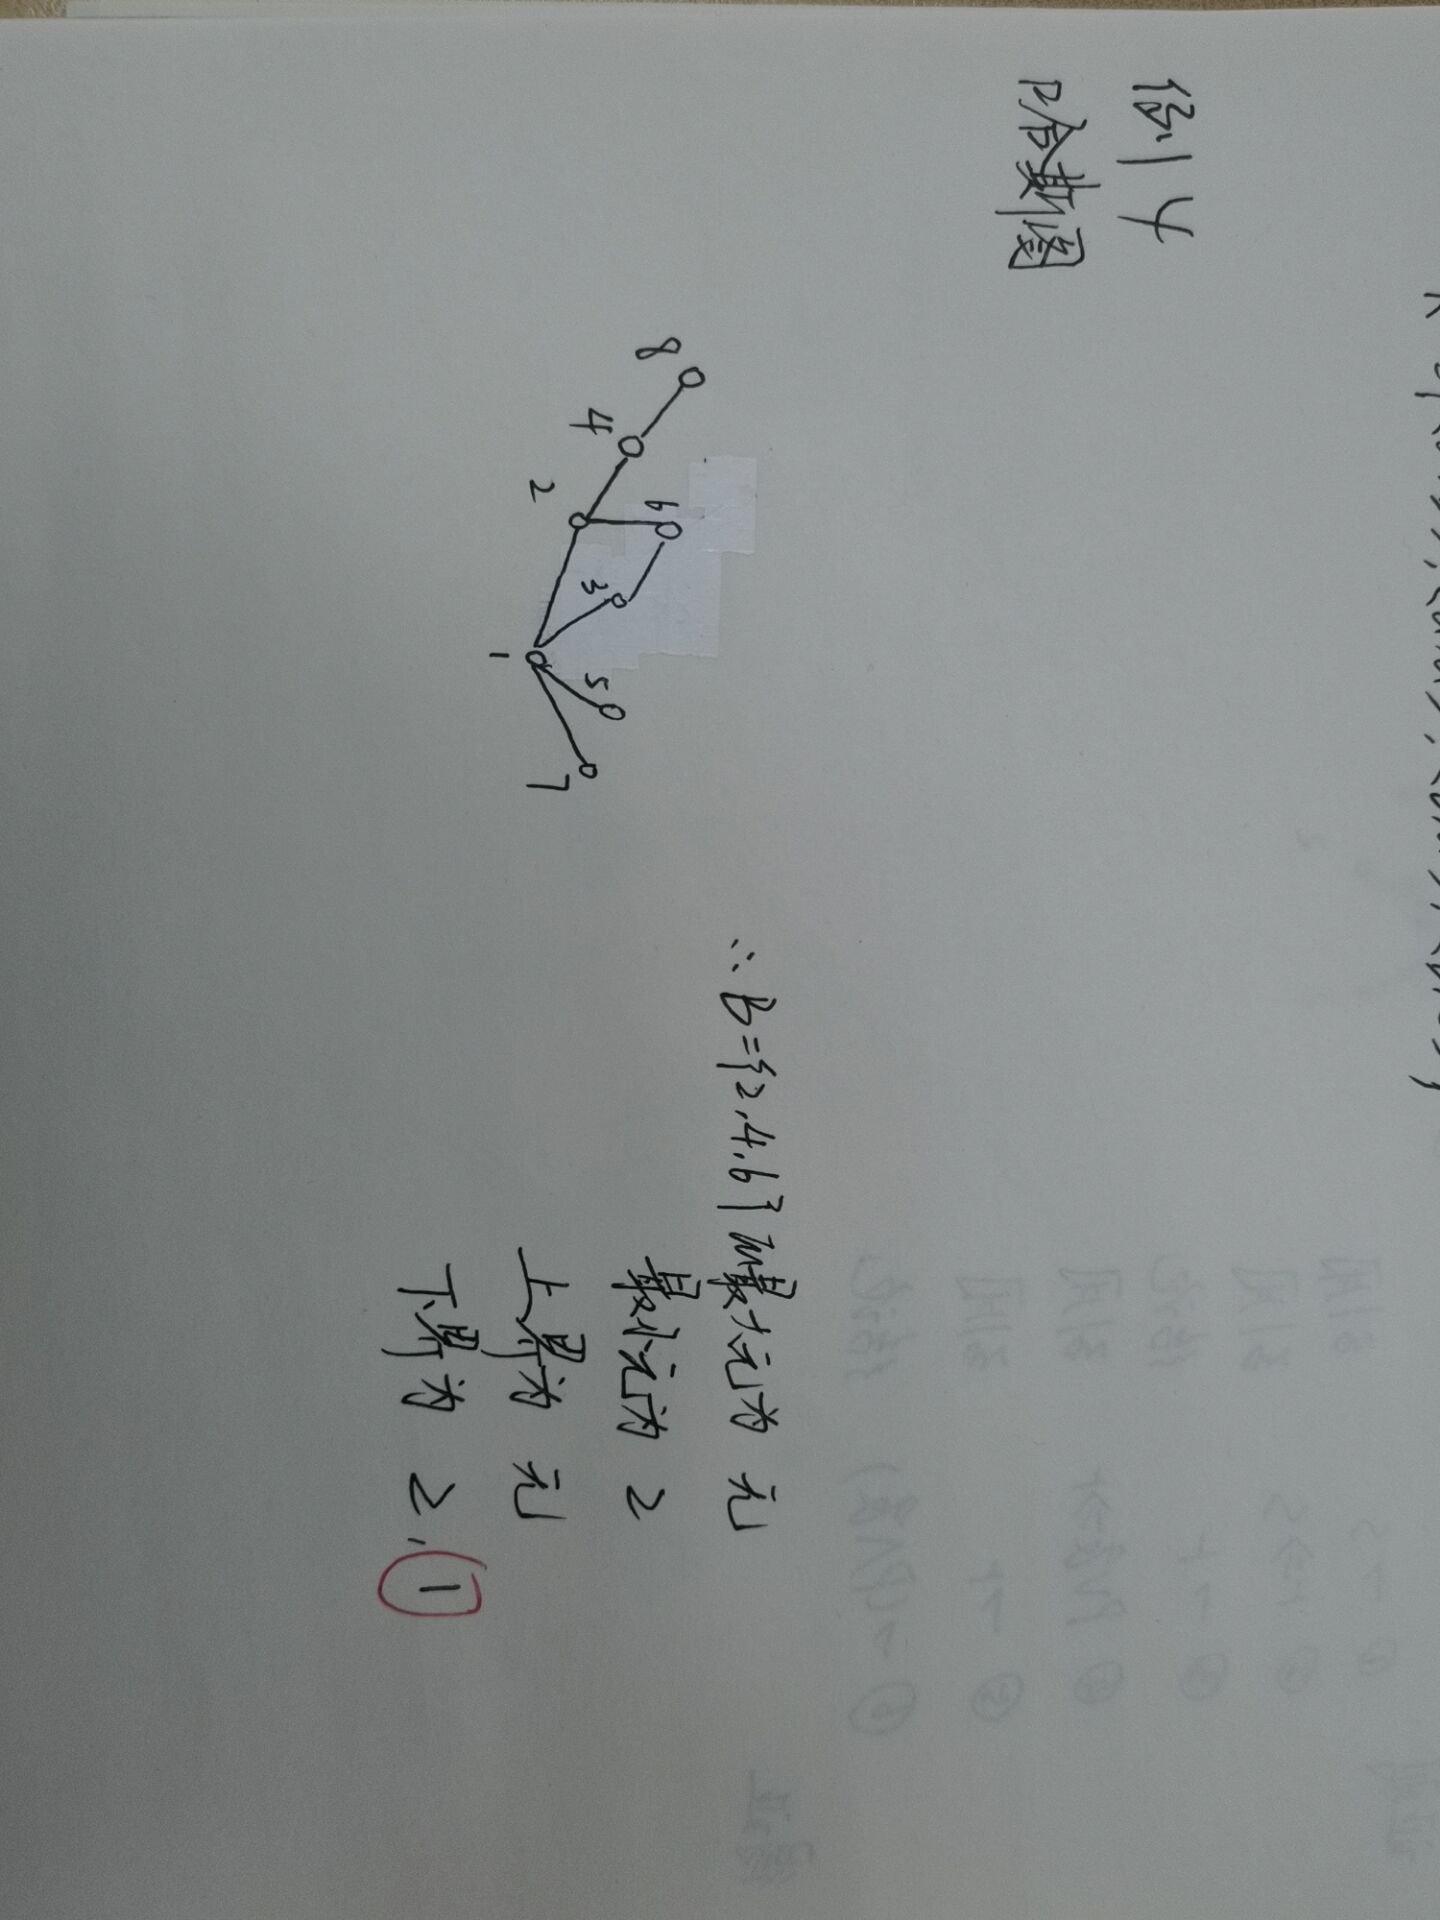 例4
哈斯图
8
6
4
3
5
2
7
1
∴ B={2,4,6}的最大元为 无
最小元为 2
上界为 无
下界为 2,1